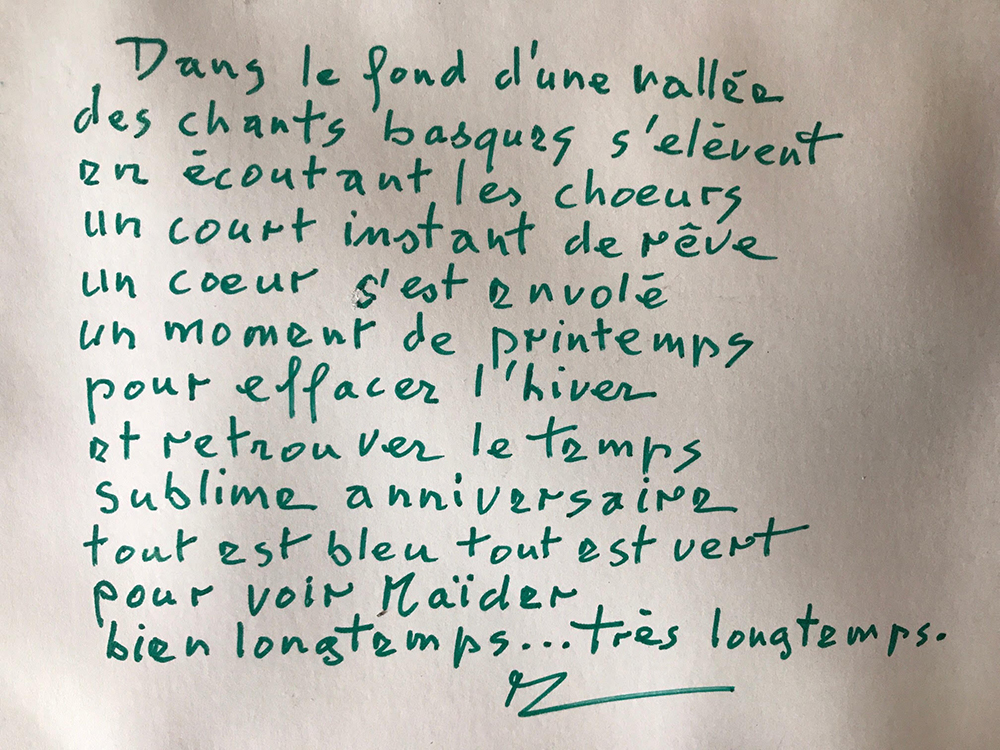 Dans le fond d'une vallée
des chants basques s'elèvent
en écoutant les choeurs
un court instant de rêve
un coeur s'est envolé
un moment de printemps
pour effacer l'hiver
et retrouver le temps
sublime anniversaire
tout est bleu tout est vert
pour voir Maïder
bien longtemps...très longtemps.